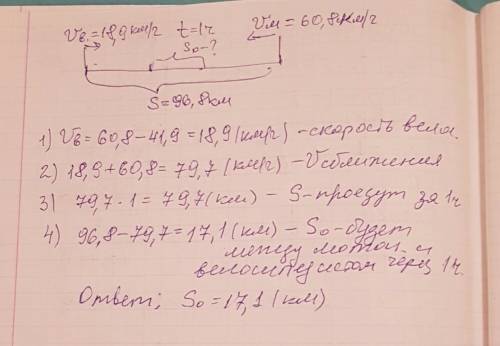 Vв.=18,9км/г t=1ч Vм=60,8км/г
S₀-?
S=96,8км
1) Vв=60,8-41,9=18,9(км/г) -скорость вела.
2) 18,9+60,8=79,7(км/г) -Vсближения
3) 79,7·1=79,7(км) - S-проедут за 1ч
4) 96,8-79,7=17,1(км) - S₀-будет
между мотоц. и
велосипедистом через 1ч.
Ответ; S₀=17,1(км)